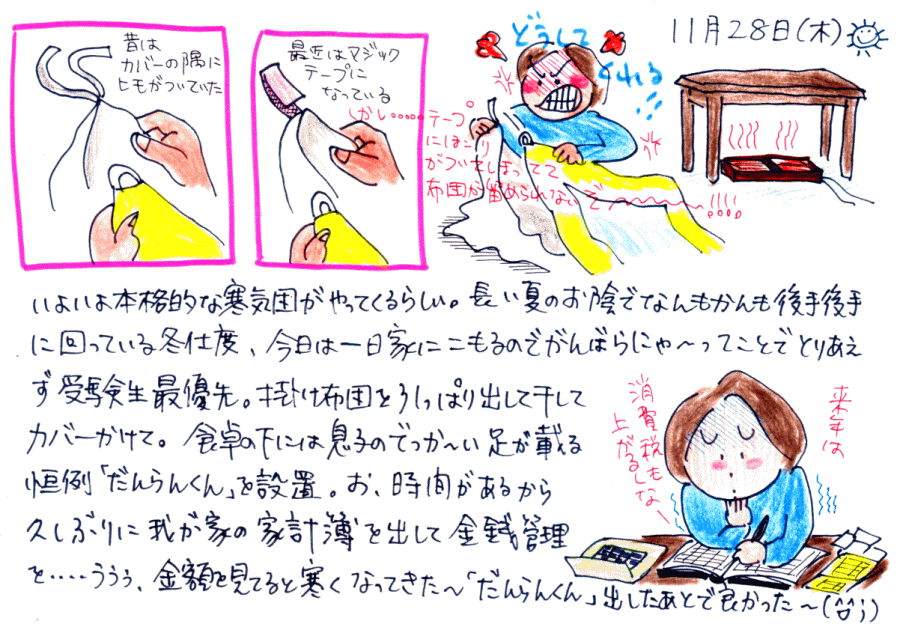 11月28日(木)
昔は
カバーの隅に
ヒモがついていた
最近はマジック
テープに
なっている
しかし……テープ
にほこり
がついてしまってて
布団が留められないで〜〜!!!!
どうして
くれる
!!
いよいよ本格的な寒気団がやってくるらしい。長い夏のお陰でなんもかんも後手後手
に回っている冬仕度、今日は一日家にこもるのでがんばらにゃ〜ってことでとりあえ
ず受験生最優先。掛け布団をうしっぱり出して干して
カバーかけて。食卓の下には息子のでっか〜い足が載る
恒例「だんらんくん」を設置。お、時間があるから
久しぶりに我が家の家計簿を出して金銭管理
を‥‥ううぅ、金額を見てると寒くなってきた〜「だんらんくん」出したあとで良かった〜(^^;)
来年は
消費税も
上がるしな〜